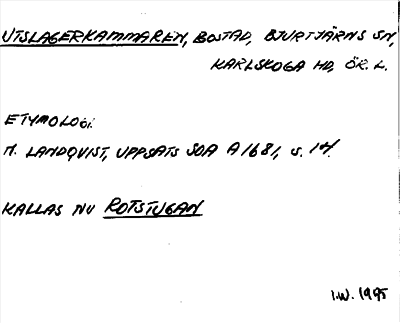 UTSLAGERKAMMAREN, BOSTAD, BJURTJÄRNS SN,
KARLSKOGA HD, ÖR. L.
ETYMOLOGI.
M. LANDQVIST, UPPSATS SOA A 1681, S. 14.
KALLAS NU ROTSTUGAN
I.W. 1995